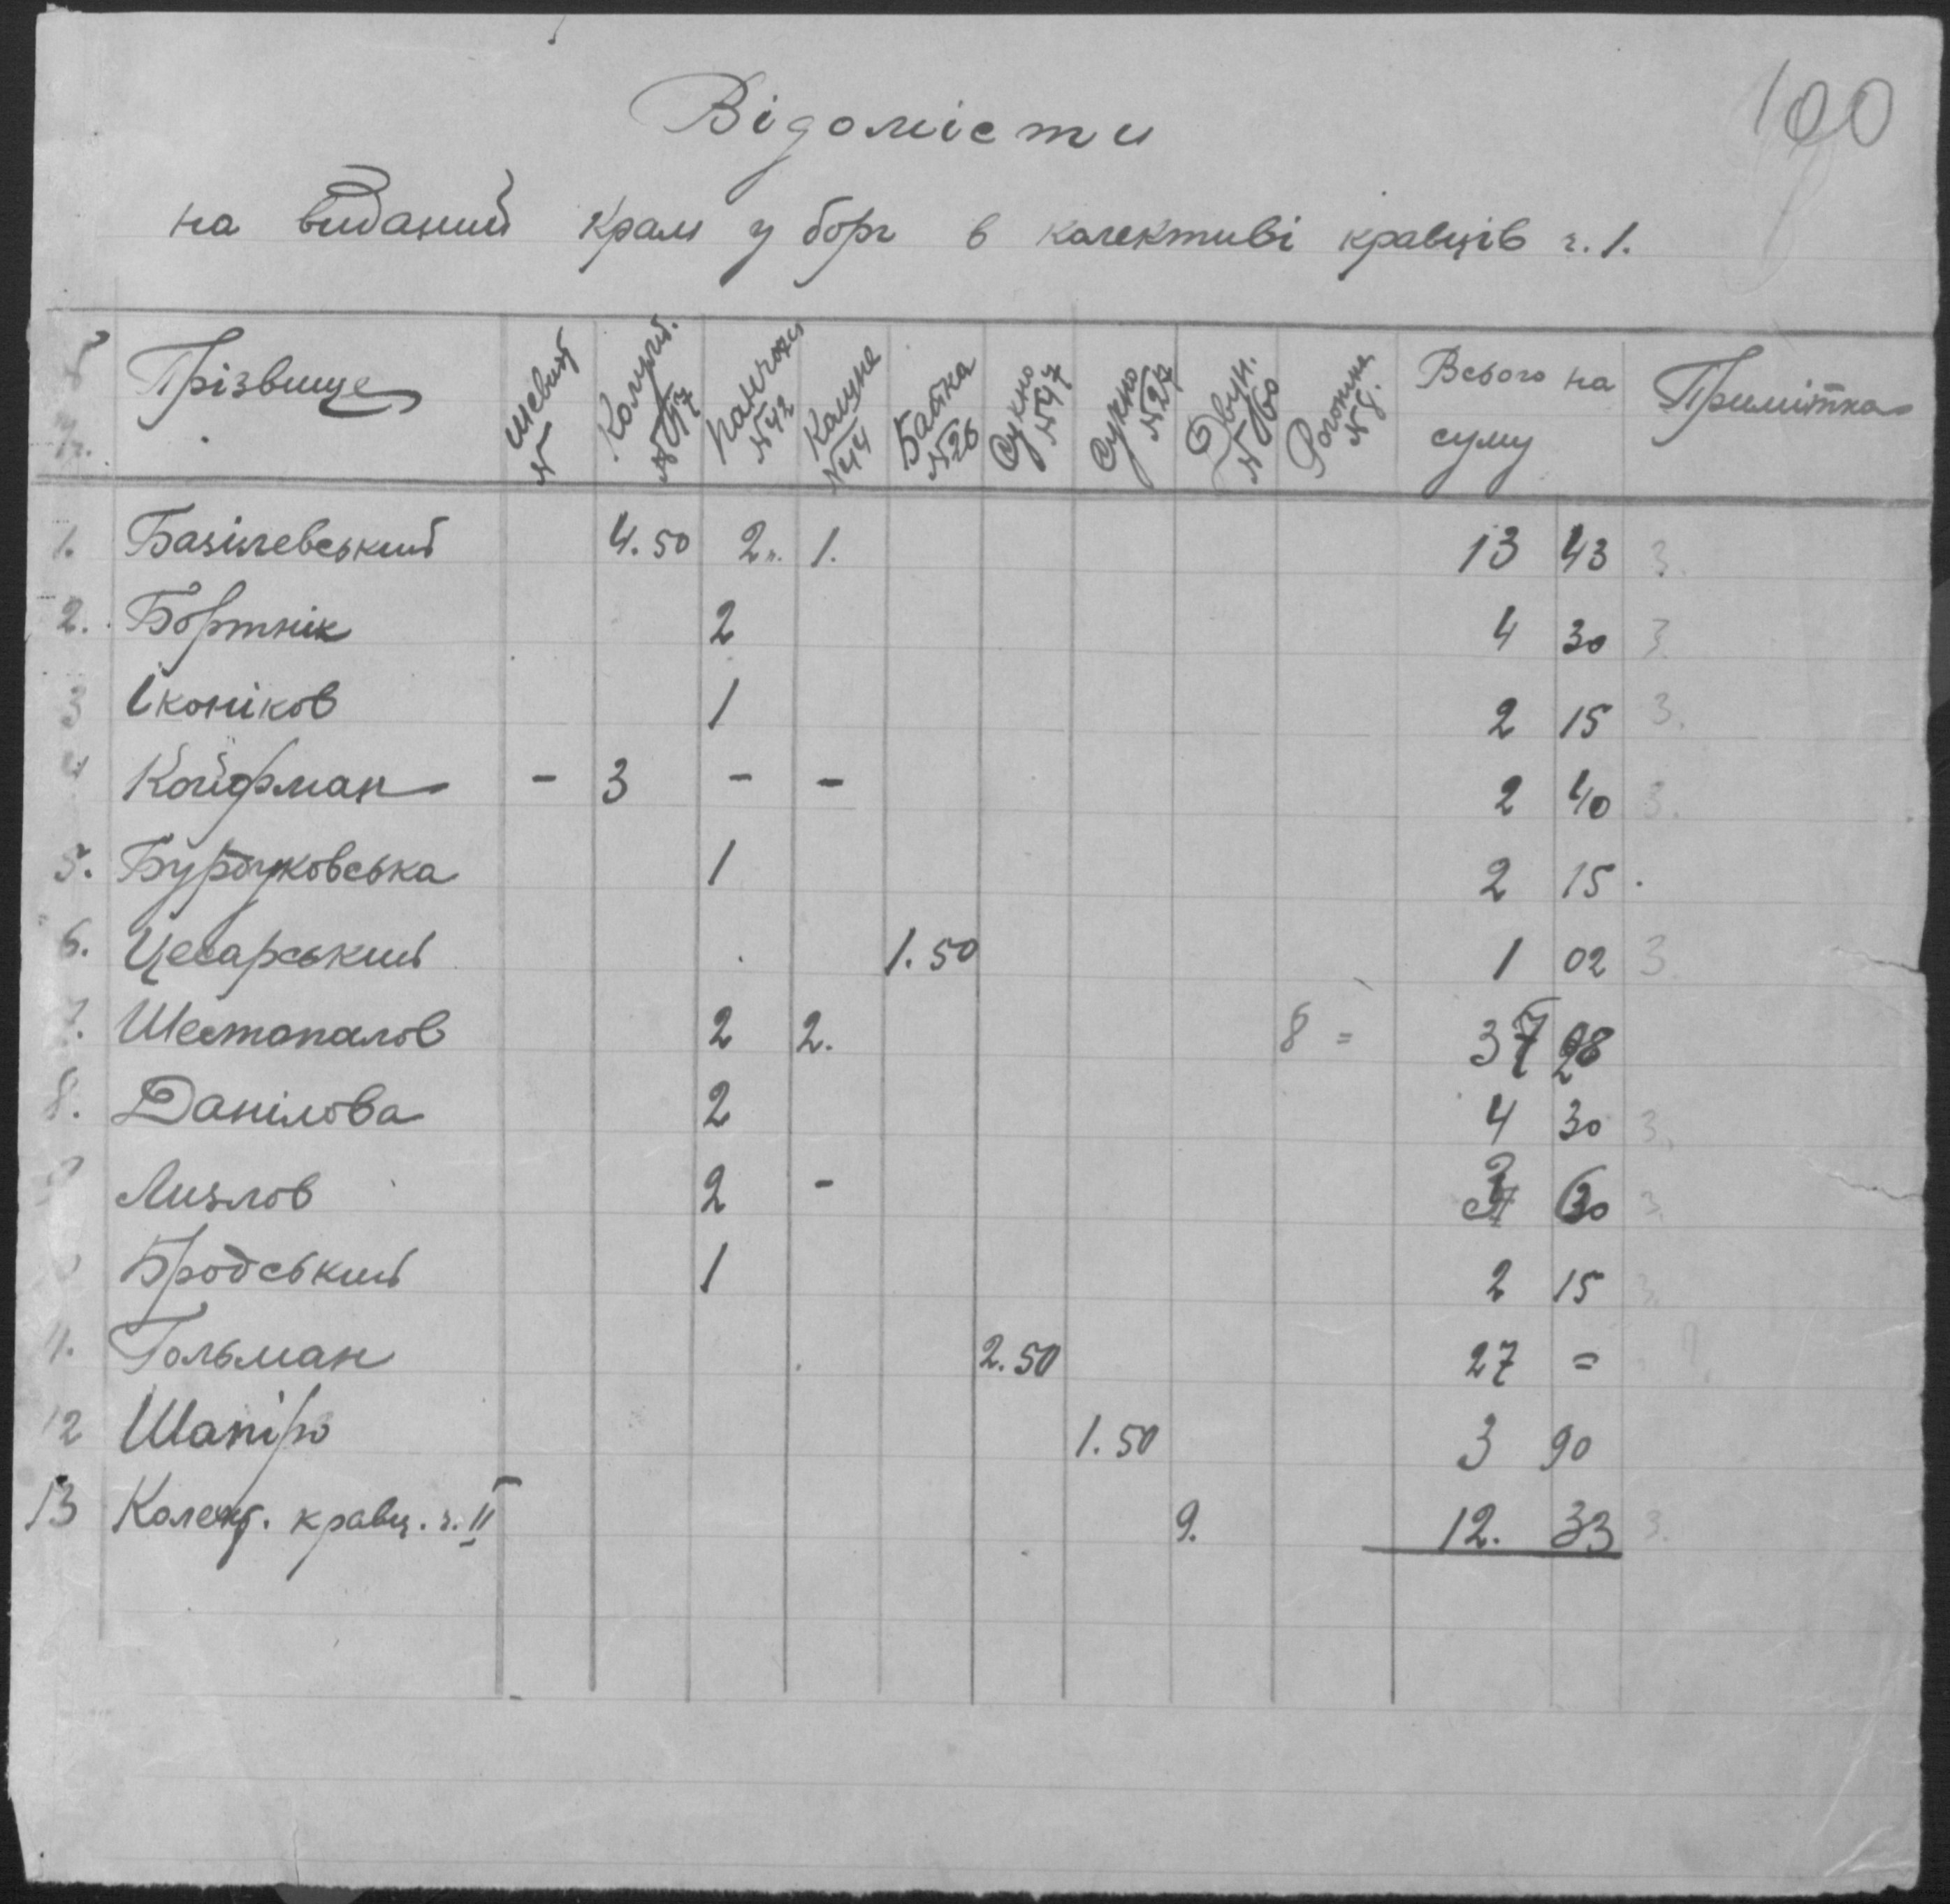 100
Відомісти
на виданий крам у борг в колективі кравців ч. 1.
Прізвище Шевйот № № 17 № 42 № 44 Байка № 26 Сукно № 47 Сукно № 27 Двун. № 60 Рогожка № 8. Всього на суму Примітка
1. Базілевський 4.50 2 1. 13 43 3.
2. Бортнік 2 4 30 3.
3 Іконіков 1 2 15 3.
4 Койфман - 3 - - 2 40 3.
5. 1 2 15
6. Цесарський 1.50 1 02 3
7. Шестопалов 2 2. 8 =
8. Данілова 2 4 30 3.
Лизлов 2 - 3
Бродський 1 2 15 3.
11. Гольман 2.50 27 =
12 Шапіро 1.50 3 90
13 Колект. кравц. ч. II 9. 12. 33 3.